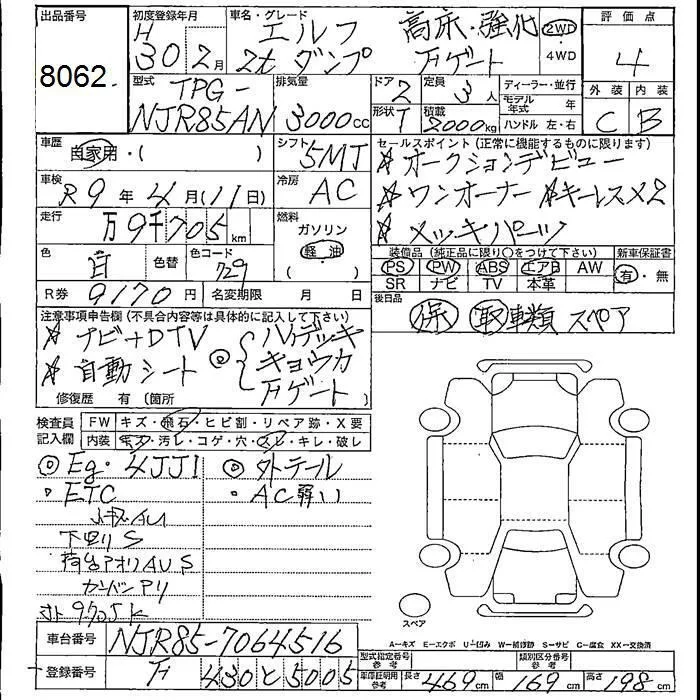 出品番号
8062
初度登録年月
H 30 2月
車名・グレード
エルフ 高床・強化
2t ダンプ Fゲート
2WD
4WD
評価点
4
外装 内装
C B
型式
TPG-
NJR85AN
排気量
3000cc
ドア
2
定員
3人
形状
T
積載
2000kg
ディーラー・並行
モデル年式 年
ハンドル 左・右
車歴
自家用・( )
シフト
5MT
車検
R9年 4月(11日)
冷房
AC
セールスポイント(正常に機能するものに限ります)
☆オークションデビュー
☆ワンオーナー ☆キーレス×2
☆メッキパーツ
走行
万9千705km
燃料
ガソリン
軽油
( )
色
白
色替
色コード
729
R券 9170円
名変期限 月 日
装備品(純正品に限り○をつけて下さい)
新車保証書
PS PW ABS エアB AW
SR ナビ TV 本革
有・無
後日品
保 取 車類 スペア
注意事項申告欄(不具合内容等は具体的に記入して下さい)
☆ナビ+DTV
☆自動シート
◎ ハイデッキ
キョウカ
Fゲート
修復歴 有 (箇所
検査員記入欄
FW キズ・飛石・ヒビ割・リペア跡・X要
内装 キズ・汚レ・コゲ・穴・スレ・キレ・破レ
◎Eg・4JJ1
◎外テール
・ETC
・AC
小キズAU
下廻りS
荷台アオリAUS
カンバンアリ
車台番号
NJR85-7064516
登録番号
430 と 5005
スペア
A=キズ E=エクボ U=凹み W=補修跡 S=サビ C=腐食 XX=交換済
型式指定番号
参考
類別区分番号
参考
車庫証明用
参考
長さ 469cm
幅 169cm
高さ 198cm